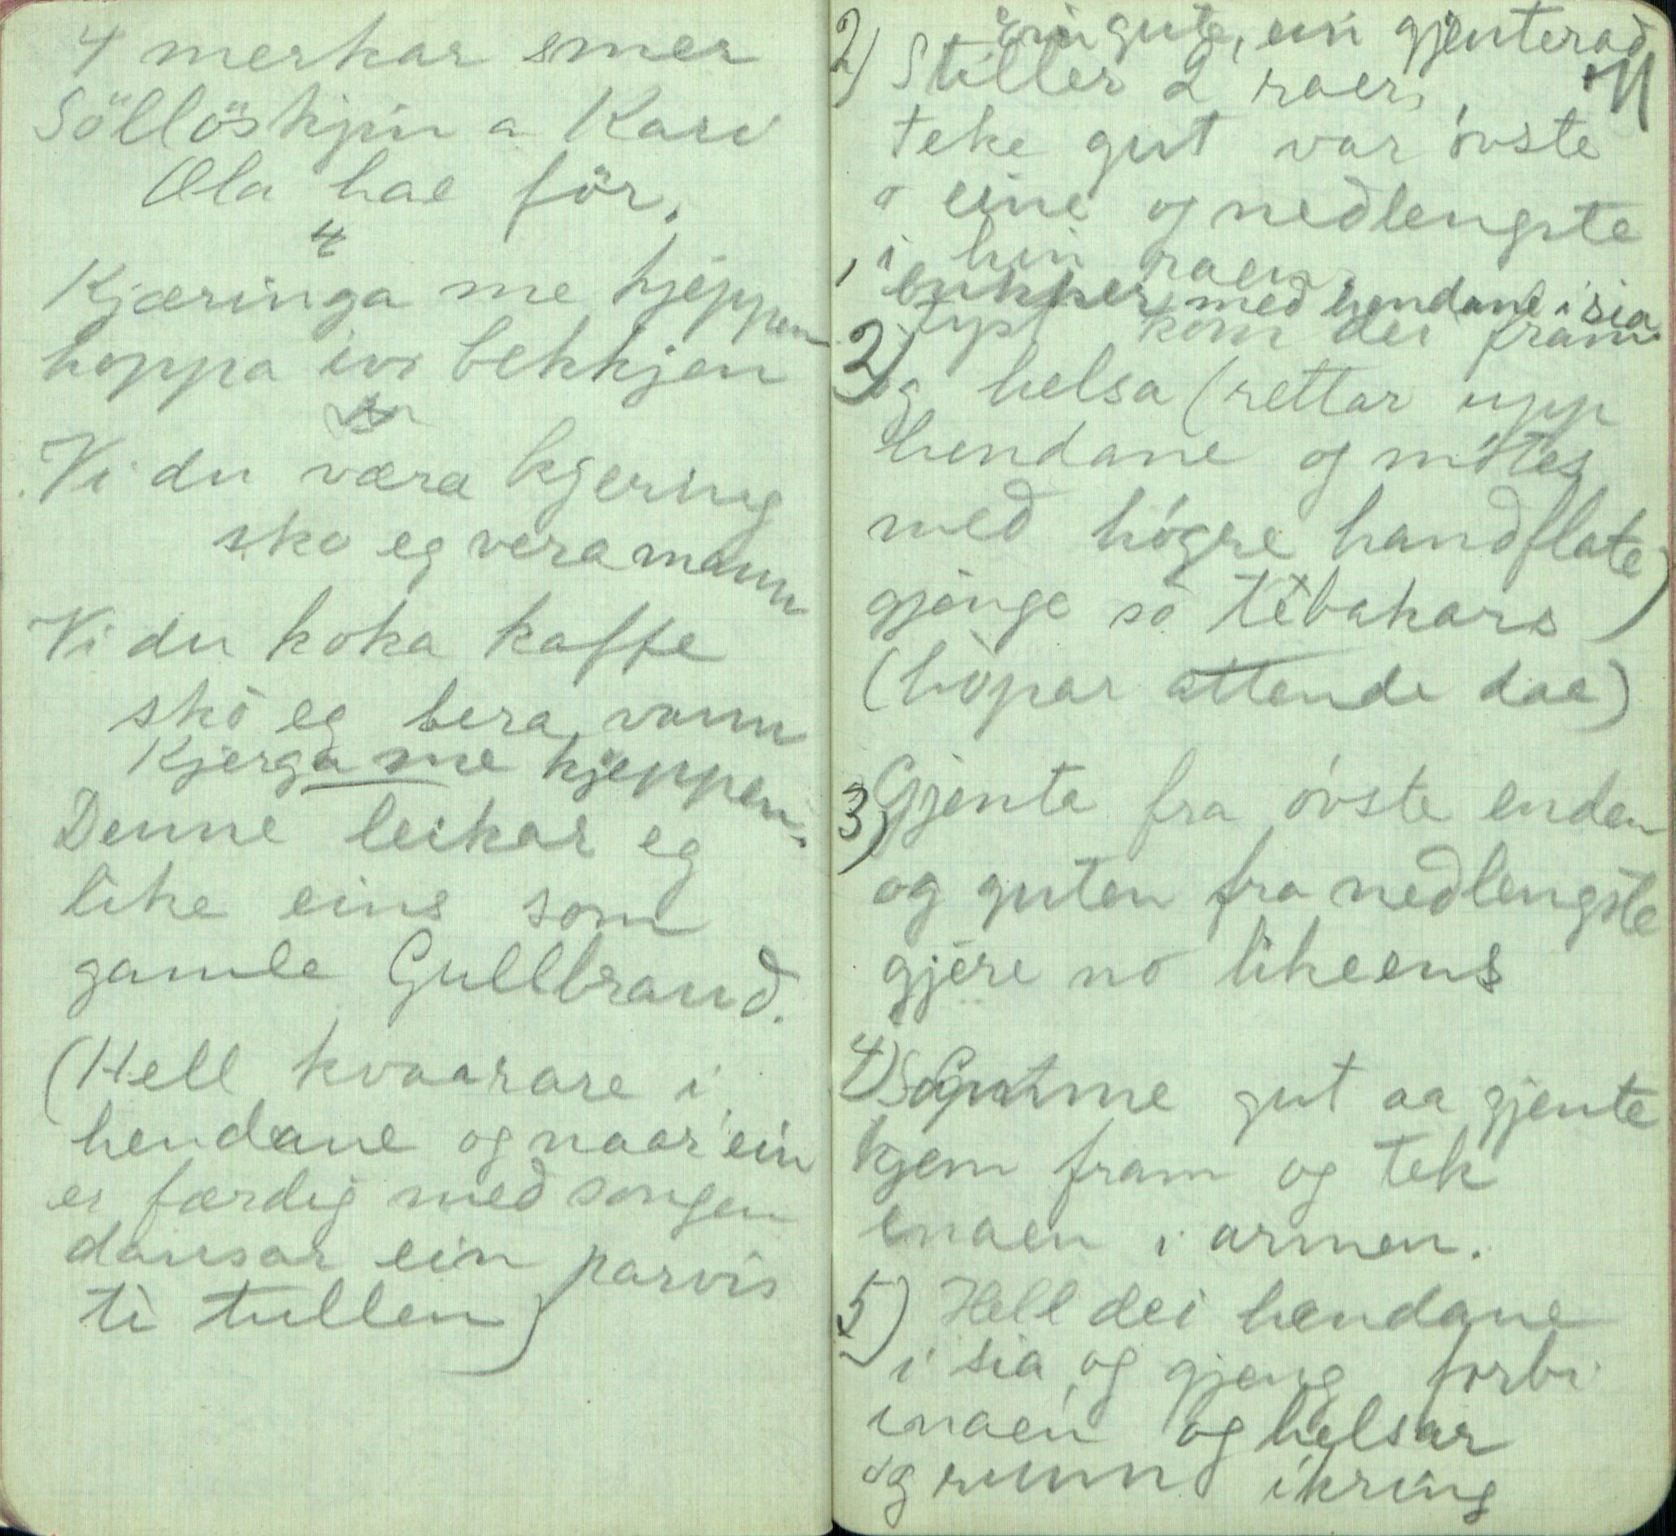 4 merkar smer
Söllöskjin a Kari
Ola hae för.
4
Kjæringa me kjeppen
hoppa ivi bekkjen
Vi du væra kjering
sko eg vera mann
Vi du koka kaffe
sko eg bera vann
Kjerga me kjeppen.
Denne leikar eg
like eins som
gamle Gullbrand.
(Hell kvaarare i
hendane og naar ein
er færdig med songen
dansar ein parvis
ti tullen)
Ein gute, ein gjenterad
2) Stiller 2 raer,
teke gut var övste
o eine og nedlengste
i hin raen
bukker med hendane i sia
fyst kom dei fram
2) og helsa (rettar upp
hendane og mötes
med högre handflate)
gjenge so tebakars
(hopar attende daa)
3) Gjente fra övste enden
og guten fra nedlengste
gjere no likeens
4) Somme gut aa gjente
kjem fram og tek
inaen i armen.
5) Hell dei hendane
i sia og gjeng forbi
inaen og helsar
og runn ikring